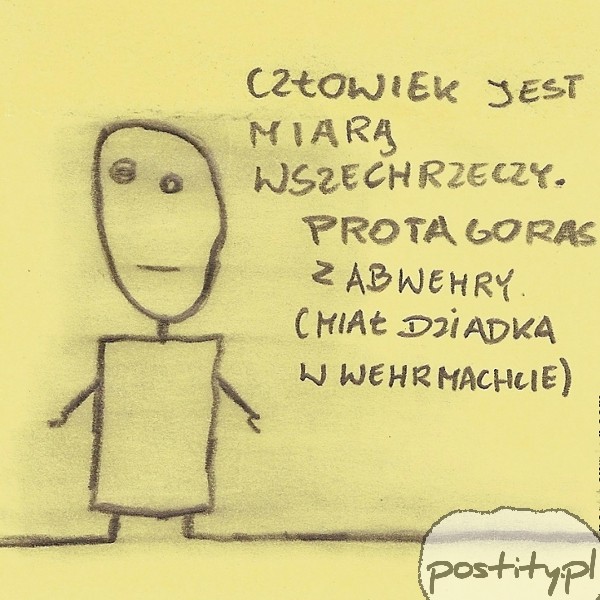 CZŁOWIEK JEST
MIARĄ
WSZECHRZECZY.
PROTAGORAS
Z ABWEHRY.
(MIAŁ DZIADKA
W WEHRMACHCIE)
postity.pl